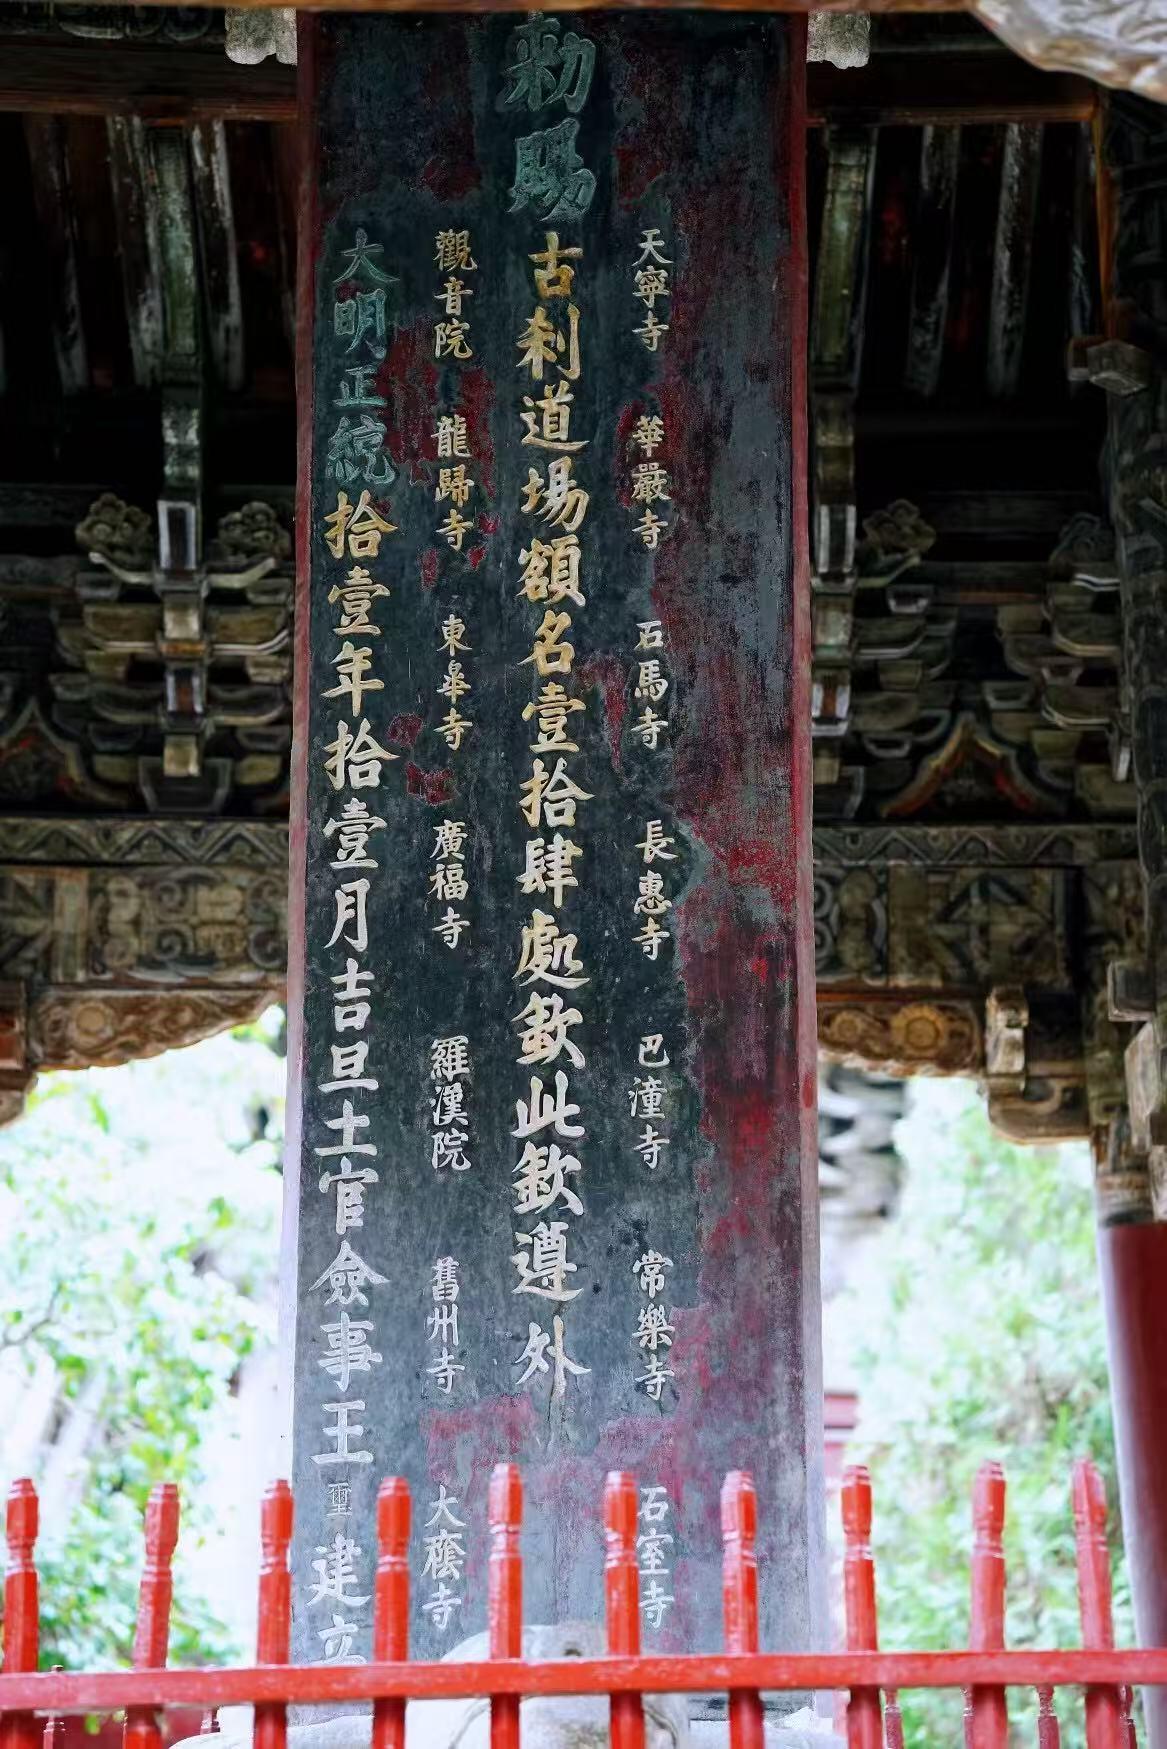 天寧寺 華嚴寺 石馬寺 長惠寺 巴潼寺 常樂寺 石室寺
勑賜古刹道場額名壹拾肆處欽此欽遵外
觀音院 龍歸寺 東皐寺 廣福寺 羅漢院 舊州寺 大蔭寺
大明正統拾壹年拾壹月吉旦土官僉事王璽建立